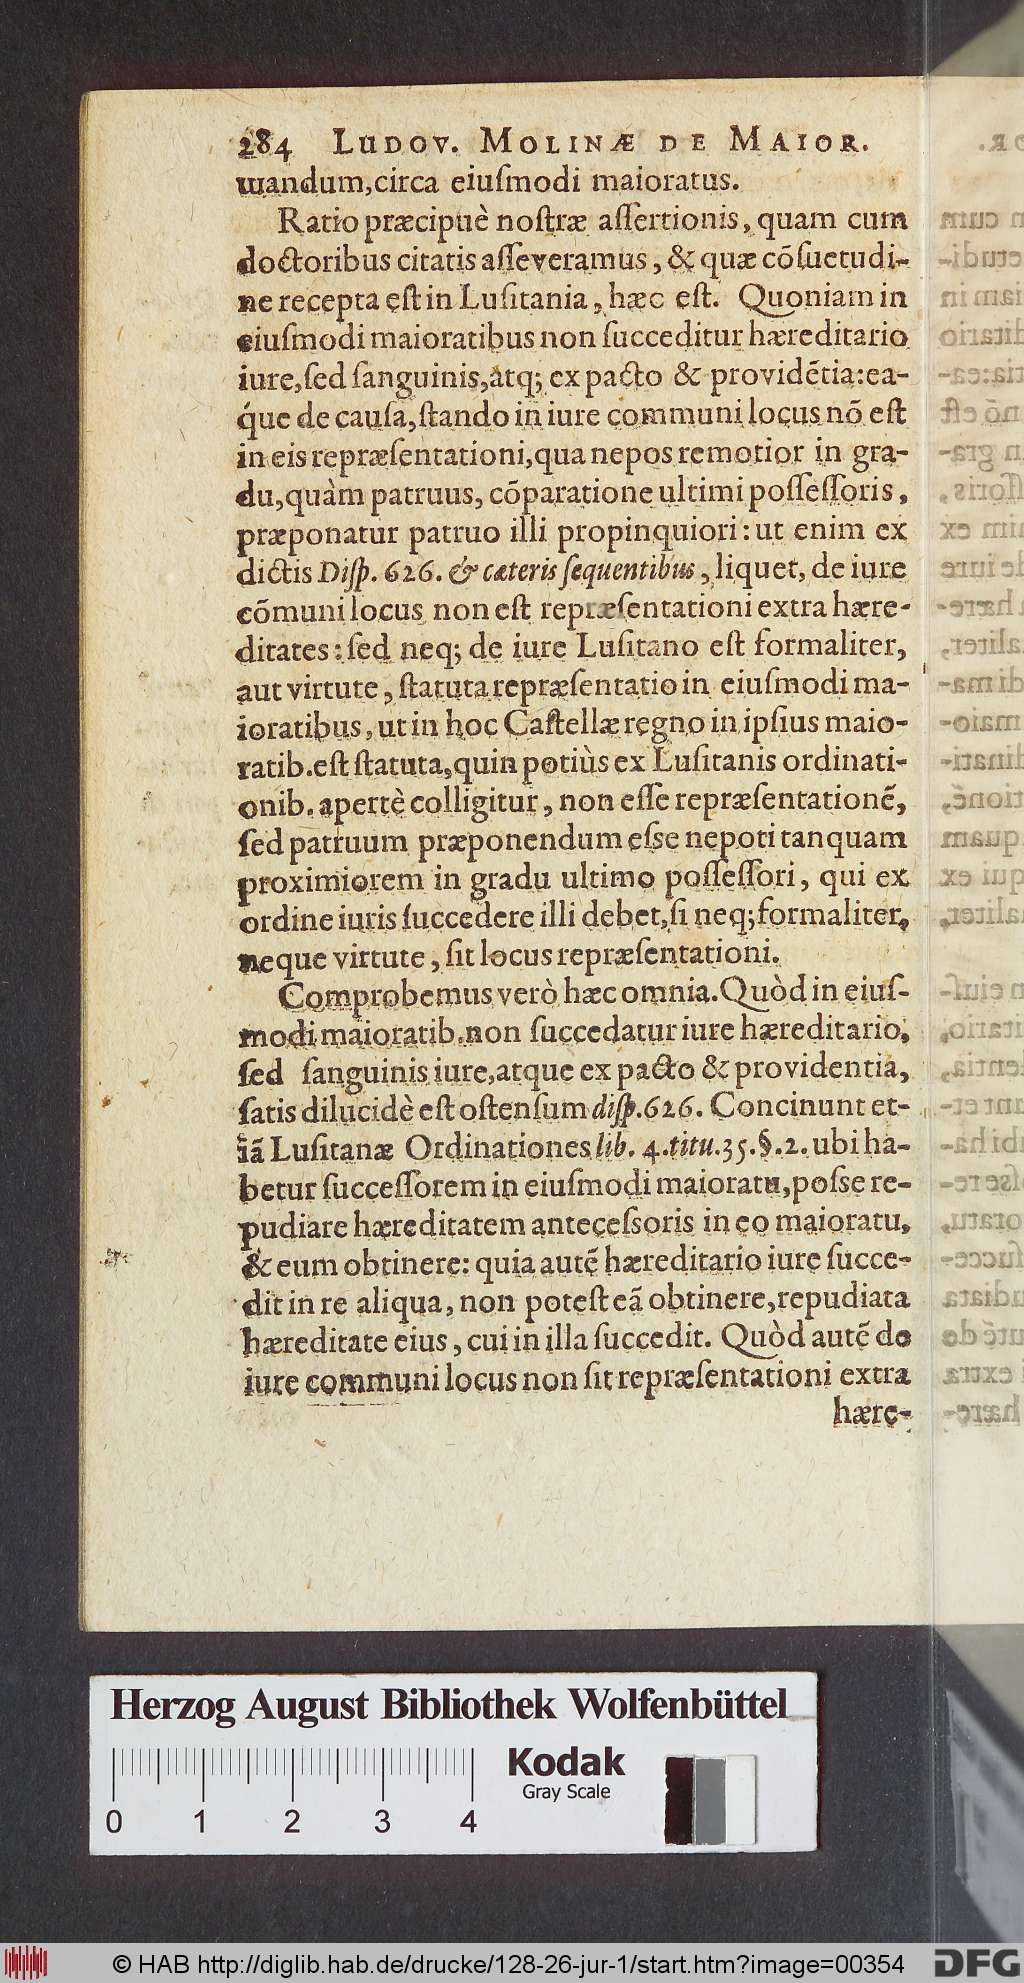 284 LUDOV. MOLINÆ DE MAIOR.
uandum,circa eiuſmodi maioratus.
Ratio præcipuè noſtræ aſſertionis, quam cum
doctoribus citatis aſſeveramus, & quæ cõſuetudi-
ne recepta eſt in Luſitania, hæc eſt. Quoniam in
eiuſmodi maioratibus non ſucceditur hæreditario
iure,ſed ſanguinis,atq; ex pacto & providẽtia:ea-
q́ue de cauſa,ſtando in iure communi locus nõ eſt
in eis repræſentationi,qua nepos remotior in gra-
du,quàm patruus, cõparatione ultimi poſſeſſoris,
præponatur patruo illi propinquiori: ut enim ex
dictis Diſp. 626. & cæteris ſequentibus, liquet, de iure
cõmuni locus non eſt repræſentationi extra hære-
ditates: ſed neq; de iure Luſitano eſt formaliter,
aut virtute, ſtatuta repræſentatio in eiuſmodi ma-
ioratibus, ut in hoc Caſtellæ regno in ipſius maio-
ratib.eſt ſtatuta,quin potiùs ex Luſitanis ordinati-
onib. apertè colligitur, non eſſe repræſentationẽ,
ſed patruum præponendum eſse nepoti tanquam
proximiorem in gradu ultimo poſſeſſori, qui ex
ordine iuris ſuccedere illi debet,ſi neq;formaliter,
neque virtute, ſit locus repræſentationi.
Comprobemus verò hæc omnia.Quòd in eiuſ-
modi maioratib.non ſuccedatur iure hæreditario,
ſed ſanguinis iure,atque ex pacto & providentia,
ſatis dilucidè eſt oſtenſum diſp.626. Concinunt et-
iã Luſitanæ Ordinationes lib. 4.titu.35.§.2. ubi ha-
betur ſucceſſorem in eiuſmodi maioratu,poſse re-
pudiare hæreditatem anteceſsoris in eo maioratu,
& eum obtinere: quia autẽ hæreditario iure ſucce-
dit in re aliqua, non poteſt eã obtinere,repudiata
hæreditate eius, cui in illa ſuccedit. Quòd autẽ de
iure communi locus non ſit repræſentationi extra
hære-
Herzog August Bibliothek Wolfenbüttel
Kodak
Gray Scale
0 1 2 3 4
© HAB http://diglib.hab.de/drucke/128-26-jur-1/start.htm?image=00354
DFG